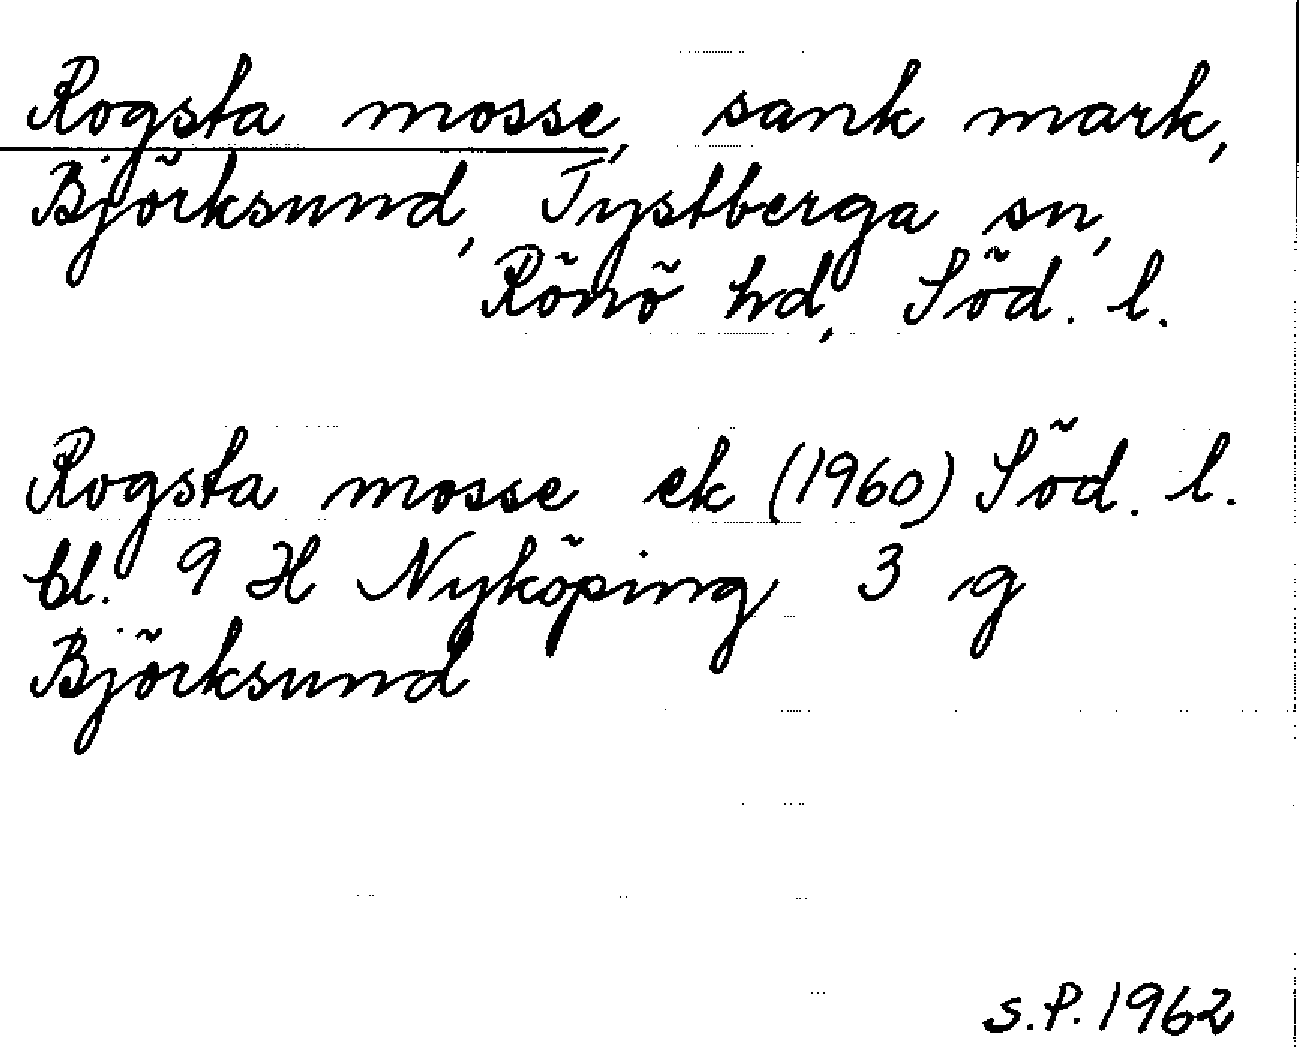 Rogsta mosse, sank mark,
Björksund, Tystberga sn,
Rönö hd, Söd. l.
Rogsta mosse ek (1960) Söd. l.
bl. 9 H Nyköping 3 g
Björksund
S.P. 1962